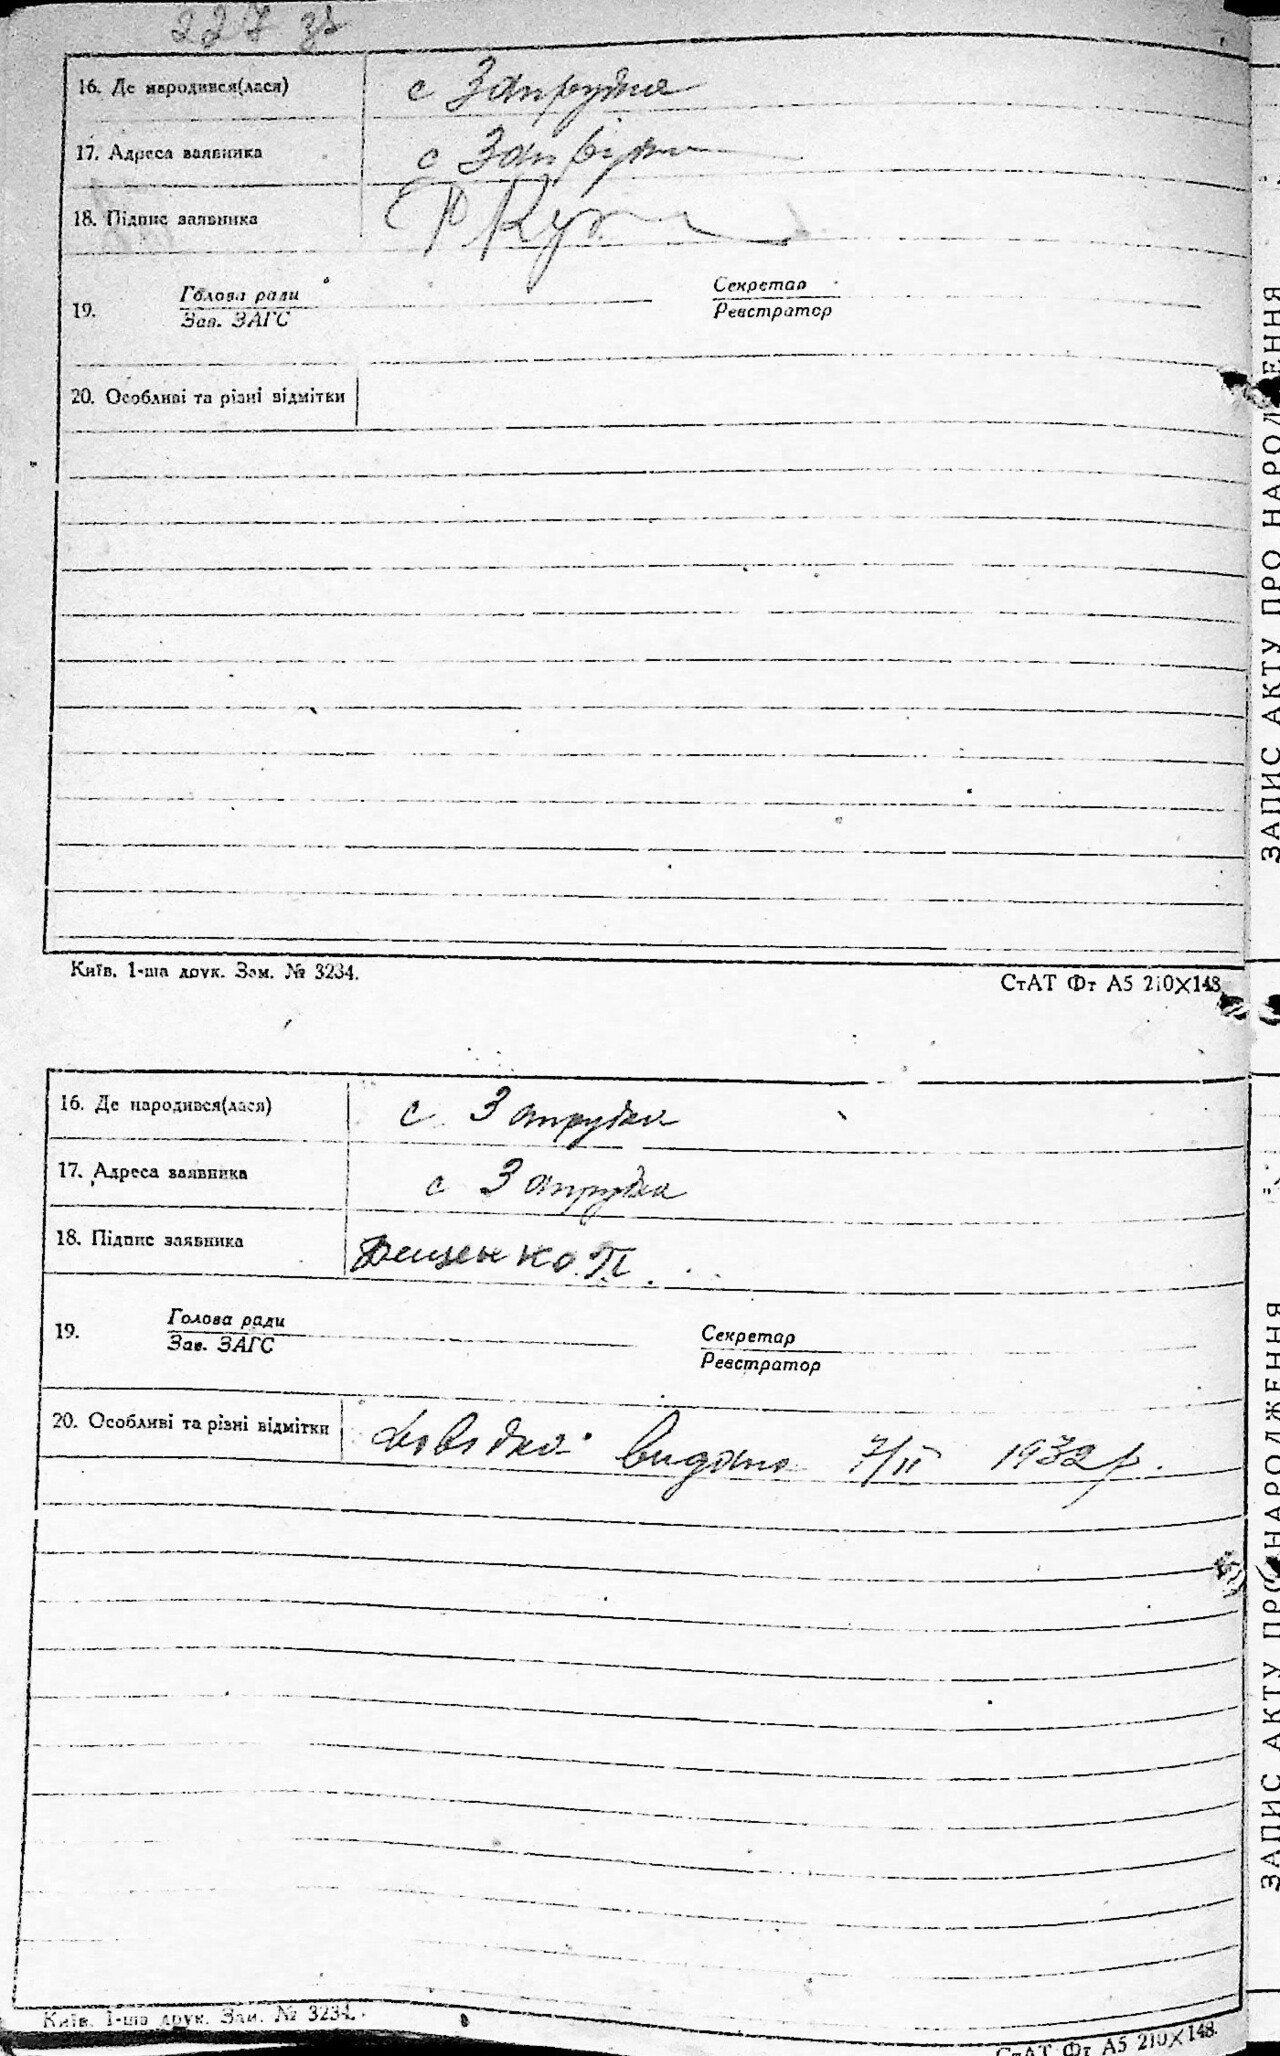 227 зв
16. Де народився(лася) с Запрудка
17. Адреса заявника с
18. Підпис заявника
19. Голова ради Секретар
Зав. ЗАГС Реєстратор
20. Особливі та різні відмітки
Київ. 1-ша друк. Зам. № 3234.
СтАТ Фт А5 210×148
16. Де народився(лася) с Запрудка
17. Адреса заявника с Запрудка
18. Підпис заявника П.
19. Голова ради Секретар
Зав. ЗАГС Реєстратор
20. Особливі та різні відмітки Довідка видана 7/II 1932 р.
Київ. 1-ша друк. Зам. № 3234.
СтАТ Фт А5 210×148.
ЗАПИС АКТУ ПРО НАРОДЖЕННЯ
ЗАПИС АКТУ ПРО НАРОДЖЕННЯ